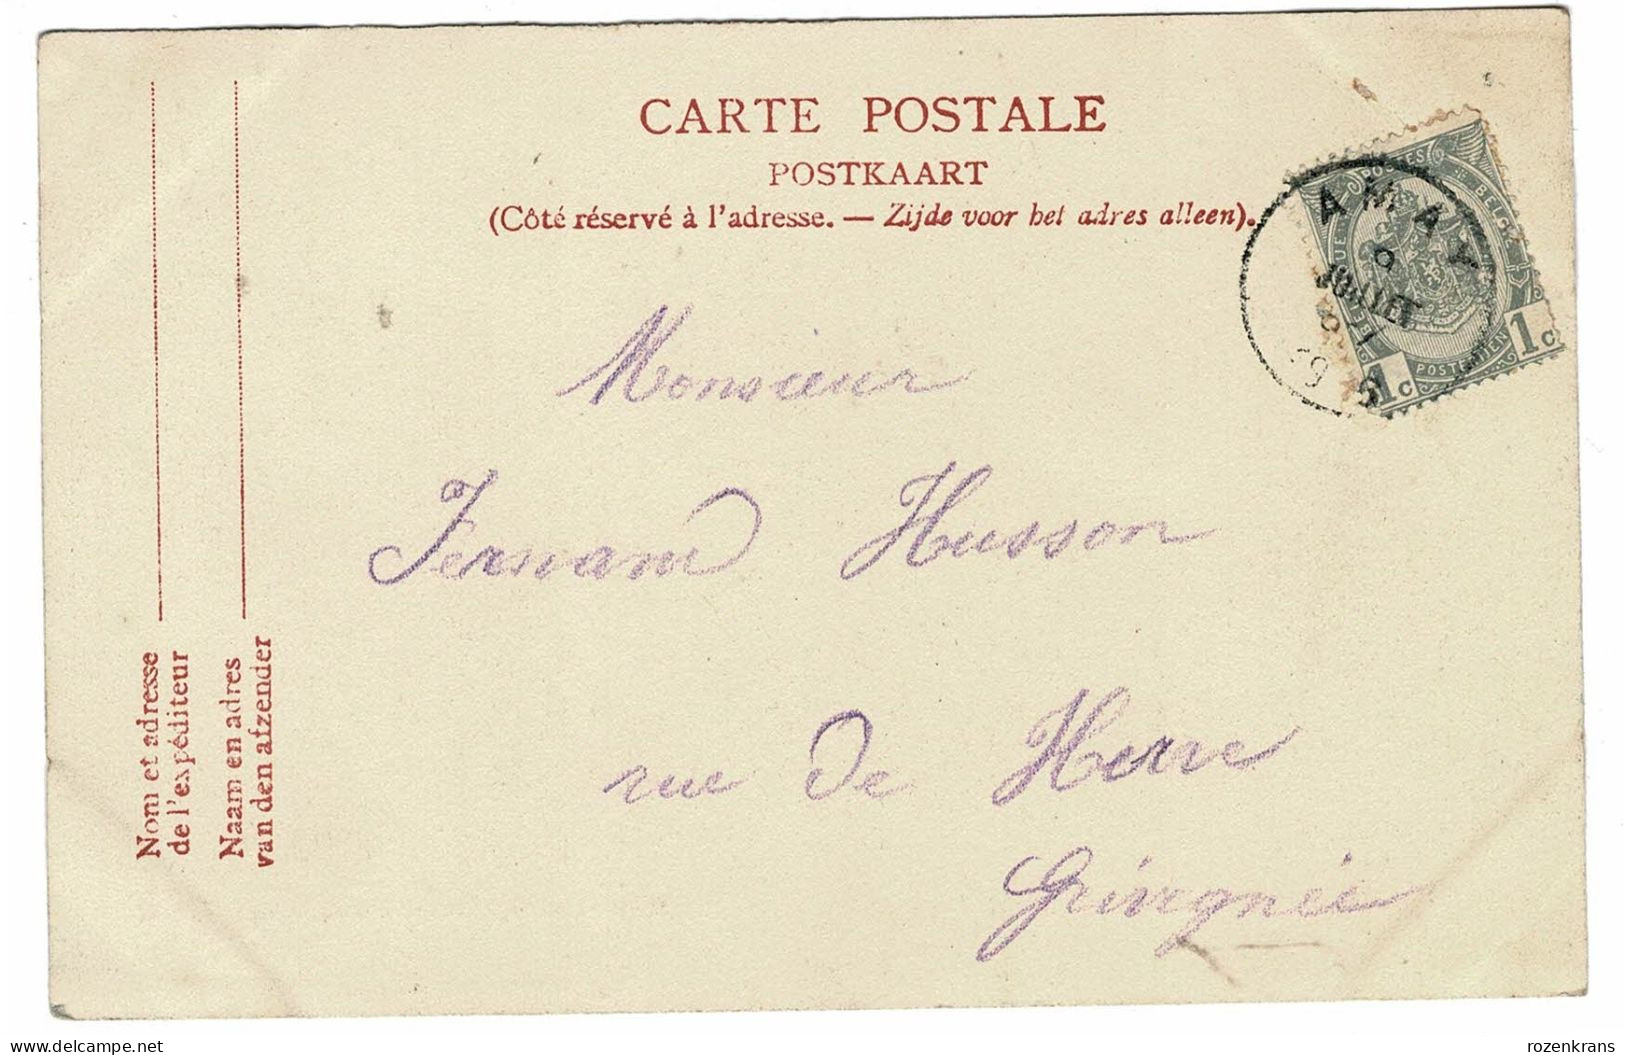 CARTE POSTALE
POSTKAART
(Côté réservé à l'adresse. — Zijde voor het adres alleen).
AMAY
9
JUILLET
POSTES BELGIQUE
POSTERIJEN
1c 1c
Monsieur
Fernand Husson
rue de Herve
Grivegnée
Nom et adresse
de l'expéditeur
Naam en adres
van den afzender
rozenkrans